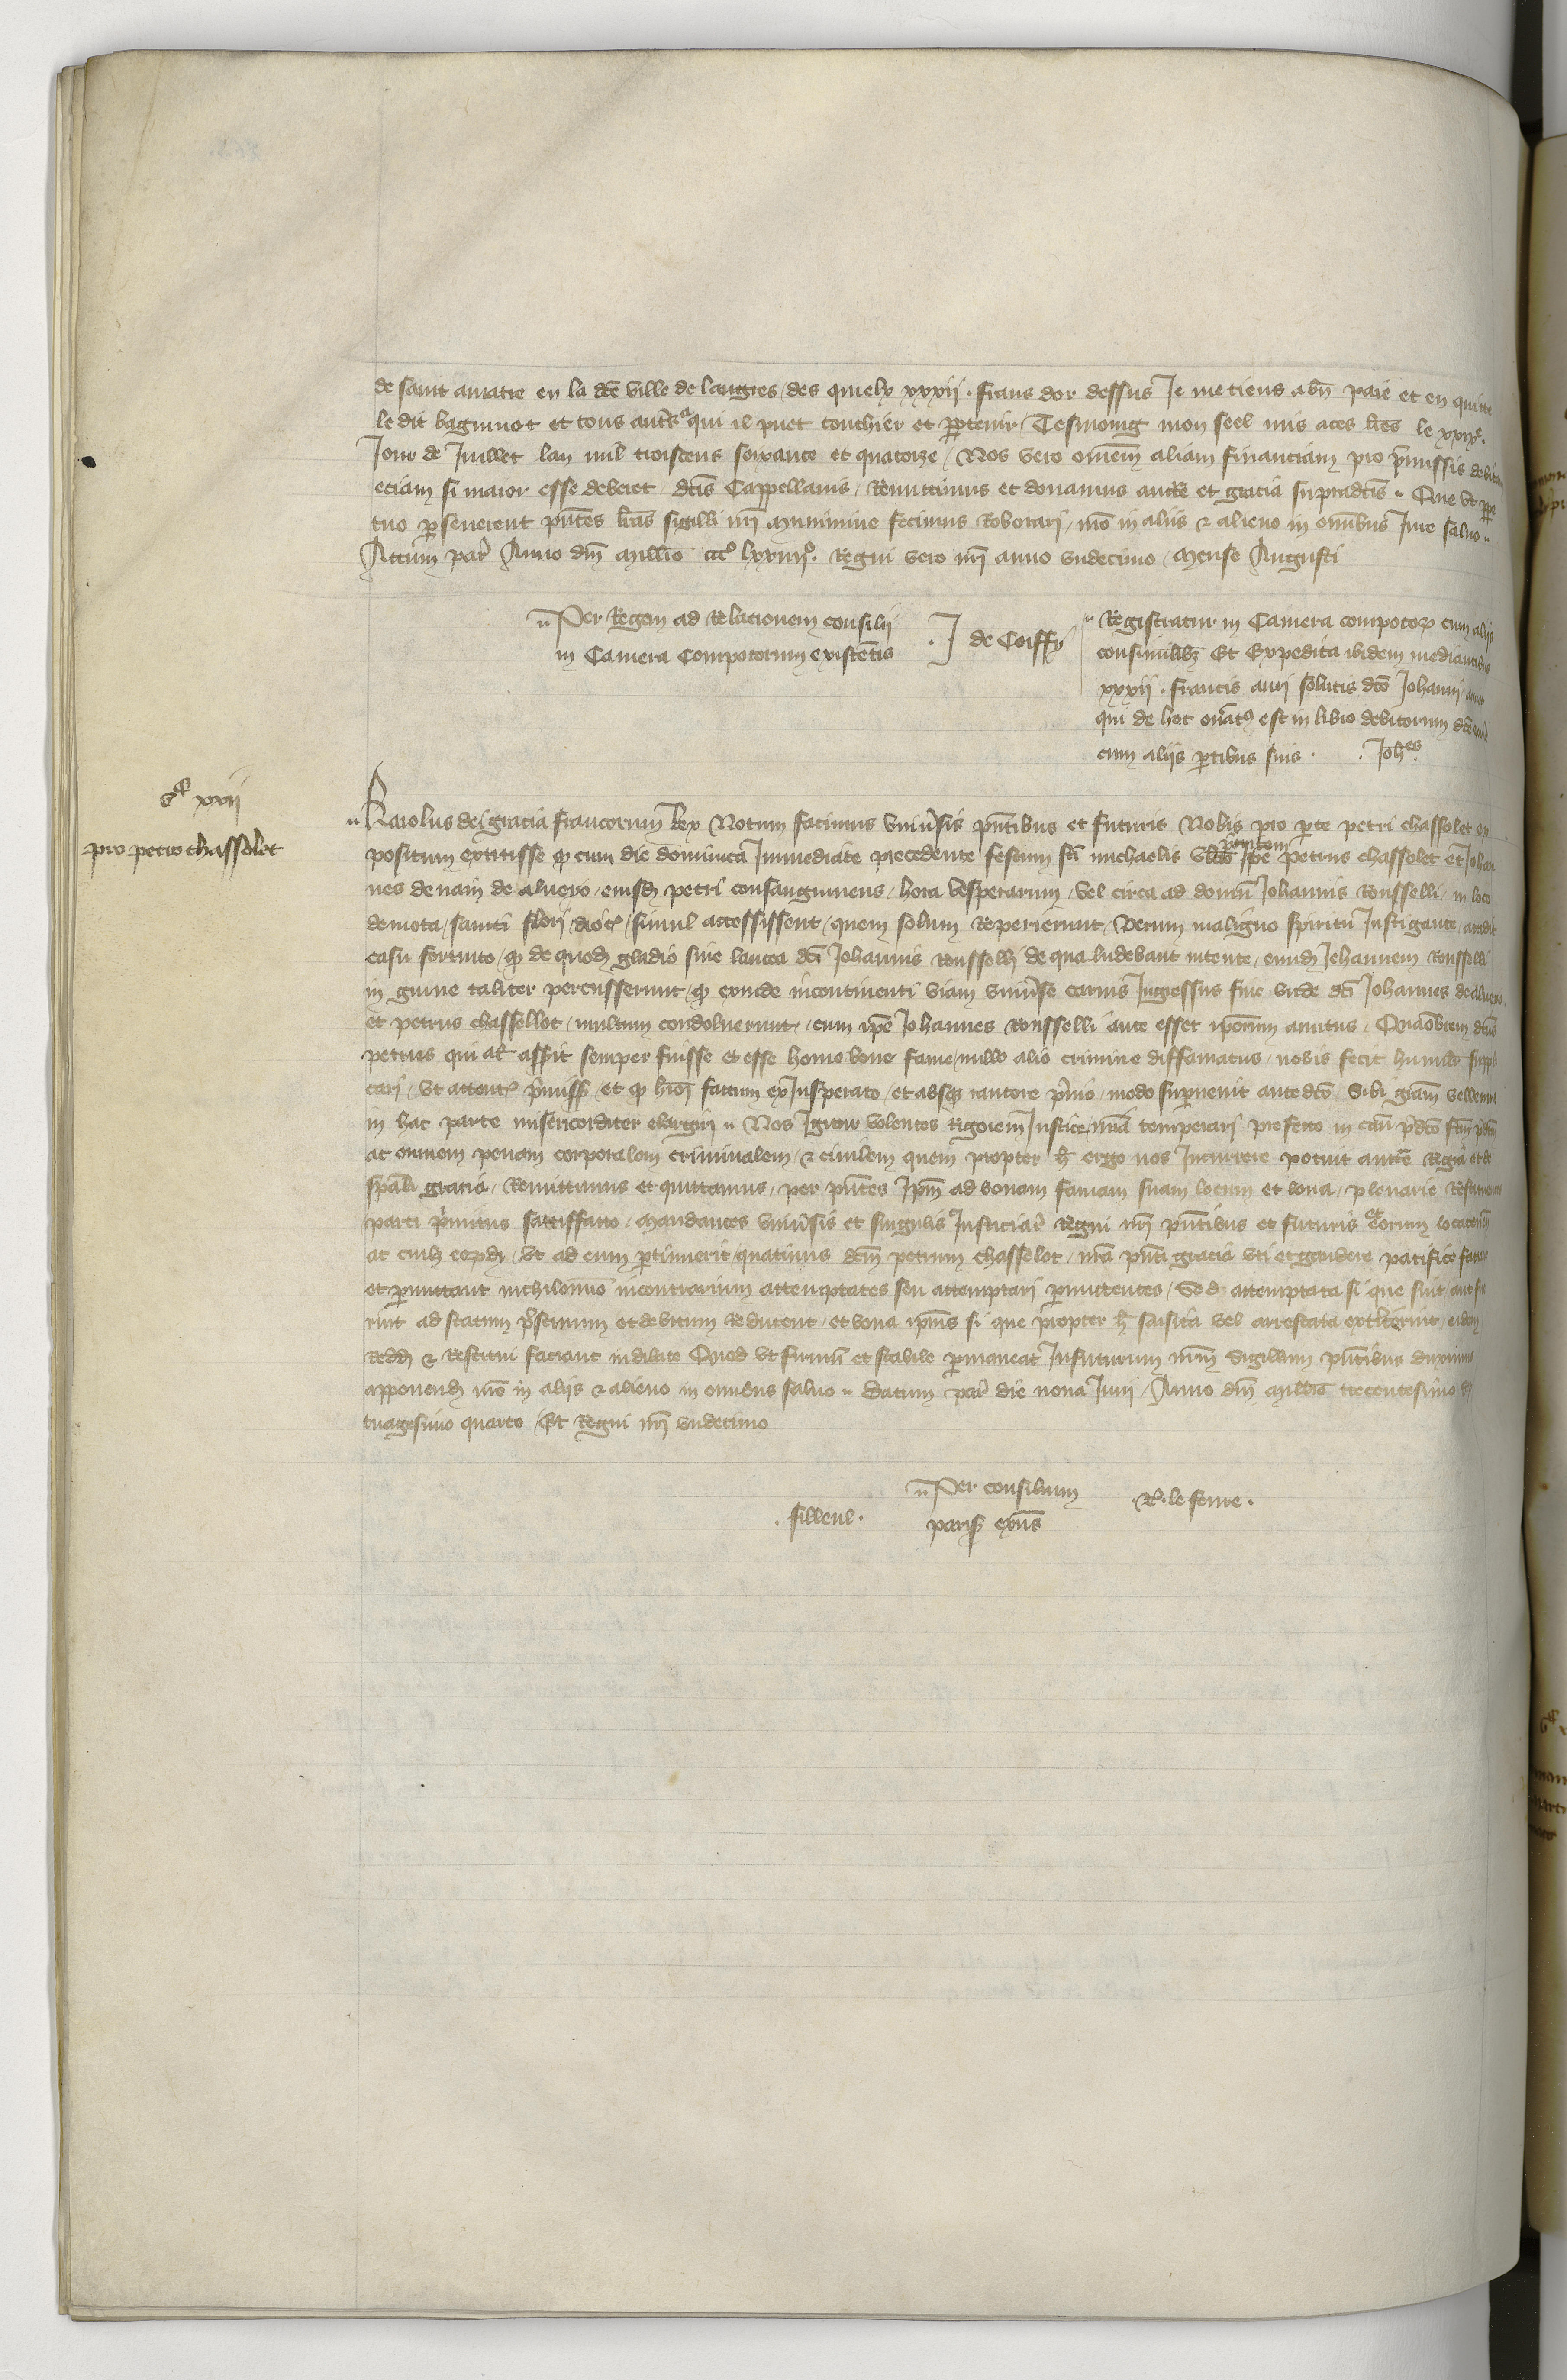 de saint amatre en la dce ville de langres des quielx xxxii. frans dor dessus Je me tiens a bn paie et en quitte
le dit baguinot et tous autrs a qui il puet touchier et ptenir Tesmoing mon seel mis a ces lres le xxixe.
Jour de Juillet lan mil troiscens soixante et quatorze / Nos vero omem aliam financiam pro pmissis debitam
etiam si maior esse deberet dcis Cappellanis / Remittimus et donamus aucte et gracia supradcis Que ut ppe
tuo pseverent pntes lras sigilli nri munimine fecimus Roborari / nro in aliis & alieno in omibus Jure salvo
Actum par Anno dni millio ccco lxxiiiio. Regni vero nri anno undecimo mense Augusti
Per Regem ad Relacionem consilii
in Camera Compotorum existetis
. J de Coiffy
Registratur in Camera compotor cum aliis
consimilibz Et Expedita ibidem mediantibus
xxxii. francis auri solutis dco Johanni
qui de hoc onatus est in libro debitorum
cum aliis ptibus suis . . Johes.
xxvii
pro petro chassolet
Karolus dei gracia francorum Rex Notum facimus univsis pntibus et futuris Nobis pro pte petri chassolet ex
positum extitisse q cum die dominica Immediate precedente festum sti michaelis ipe petrus chassolet et Johan
nes de nain de alvero eiusd petri consanguineus / hora vesperarum / vel circa ad domu Johannis Rousselli / in loco
de mota / sancti flori dioc / simul accessissent / quem solum Reperierunt / Verum maligno spiritu Instigante accidit
casu fortuito / q de quod gladio sive lancea dci Johannis Rousselli de qua ludebant intente / eund Johannem Rousselli
in guine taliter percusserunt / q exinde incontinenti viam univse carnis Ingressus fuit unde dci Johannes de alvero
et petrus chassollet / multum condoluerunt / cum ipe Johannes Rousselli ante esset iporum amicus / Quaobrem dcus
petrus qui als assit semper fuisse et esse homo bone fame / nullo alio crimine diffamatus / nobis fecit humilr suppli
cari / ut attent pmiss / et q hmoi factum ex Insperato / et absqz rancore pvio / modo supvenit antedco Sibi gram vellemus
in hac parte misericorditer elargiri Nos Igitur volentes Rigorem Justicie / nra temperari prefato in casu pdco
ac omnem penam corporalem criminalem / & civilem quem propter h ergo nos Incurrere potuit aucte Regia et de
spali gracia / Remittimus et quittamus / per pntes Ipm ad bonam famam suam locum et bona / plenarie Restituentes
parti pmitus satisffacto / Mandantes univsis et singulis Justiciar Regni nri pntibus et futuris et eorum locatenen
ac cuilz eordz / ut ad eum ptinuerit quatinus dcm petrum chassolet / nra pnti gracia uti et gaudere pacifice faciant
et pmittant nichilomo incontrarium attemptates seu attemptari pmittentes / Sed attemptata si que sint aut fue
rint ad statum psinum et debitum Reducent / et bona ipius si que propter h saisita vel arrestata extiterint / eidem
Reddi & Restitui faciant indilate Quod ut firmu et stabile pmaneat Infuturum nrum Sigillum pntibus duximus
apponend nro in aliis & alieno in omibus salvo Datum par die nona Junii / Anno dni millio trecentesimo sep
tuagesimo quarto / Et Regni nri undecimo
. filleul .
Per consilium
paris exns
. R. le fevre .